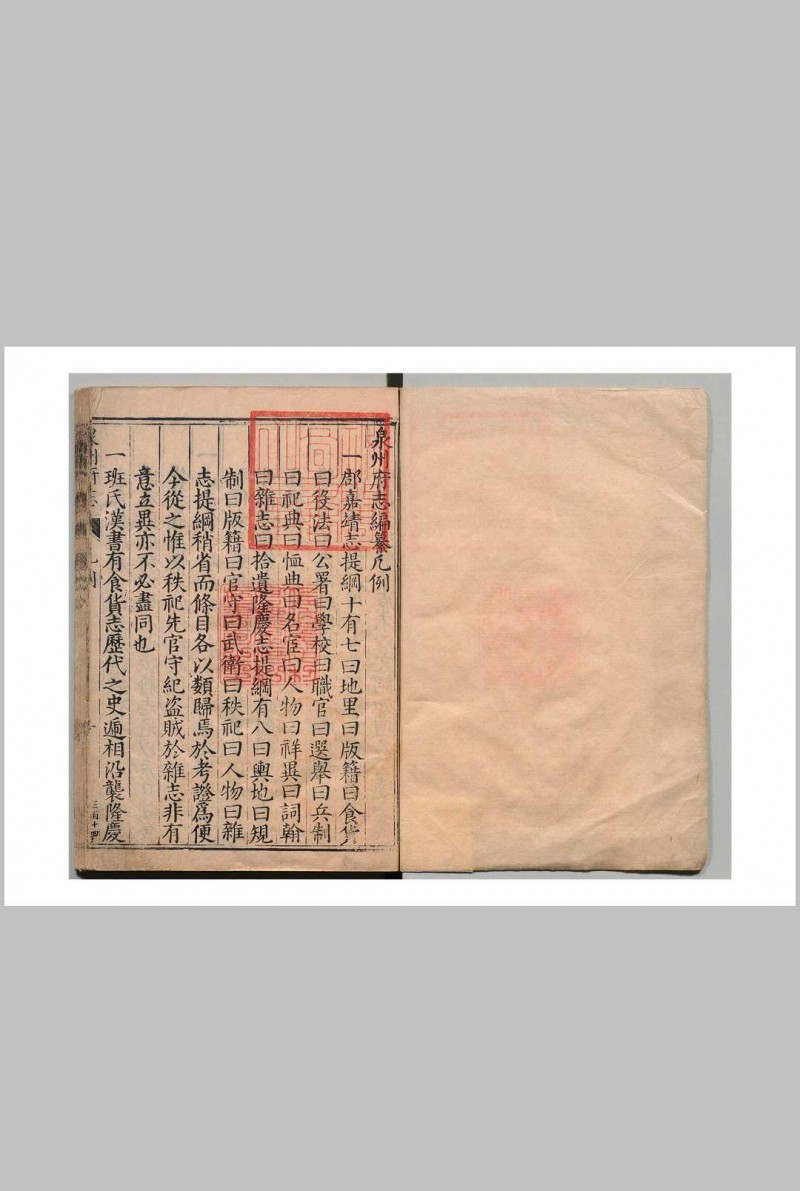 泉州府志編纂凡例
一郡嘉靖志提綱十有七曰地里曰版籍曰食貨
曰役法曰公署曰學校曰職官曰選舉曰兵制
曰祀典曰恤典曰名宦曰人物曰祥異曰詞翰
曰雜志曰拾遺隆慶志提綱有八曰輿地曰規
制曰版籍曰官守曰武衛曰秩祀曰人物曰雜
志提綱稍省而條目各以類歸焉於考證爲便
今從之惟以秩祀先官守紀盜賊於雜志非有
意立異亦不必盡同也
一班氏漢書有食貨志歷代之史遞相沿襲隆慶
泉州府志
凡例
三百十四